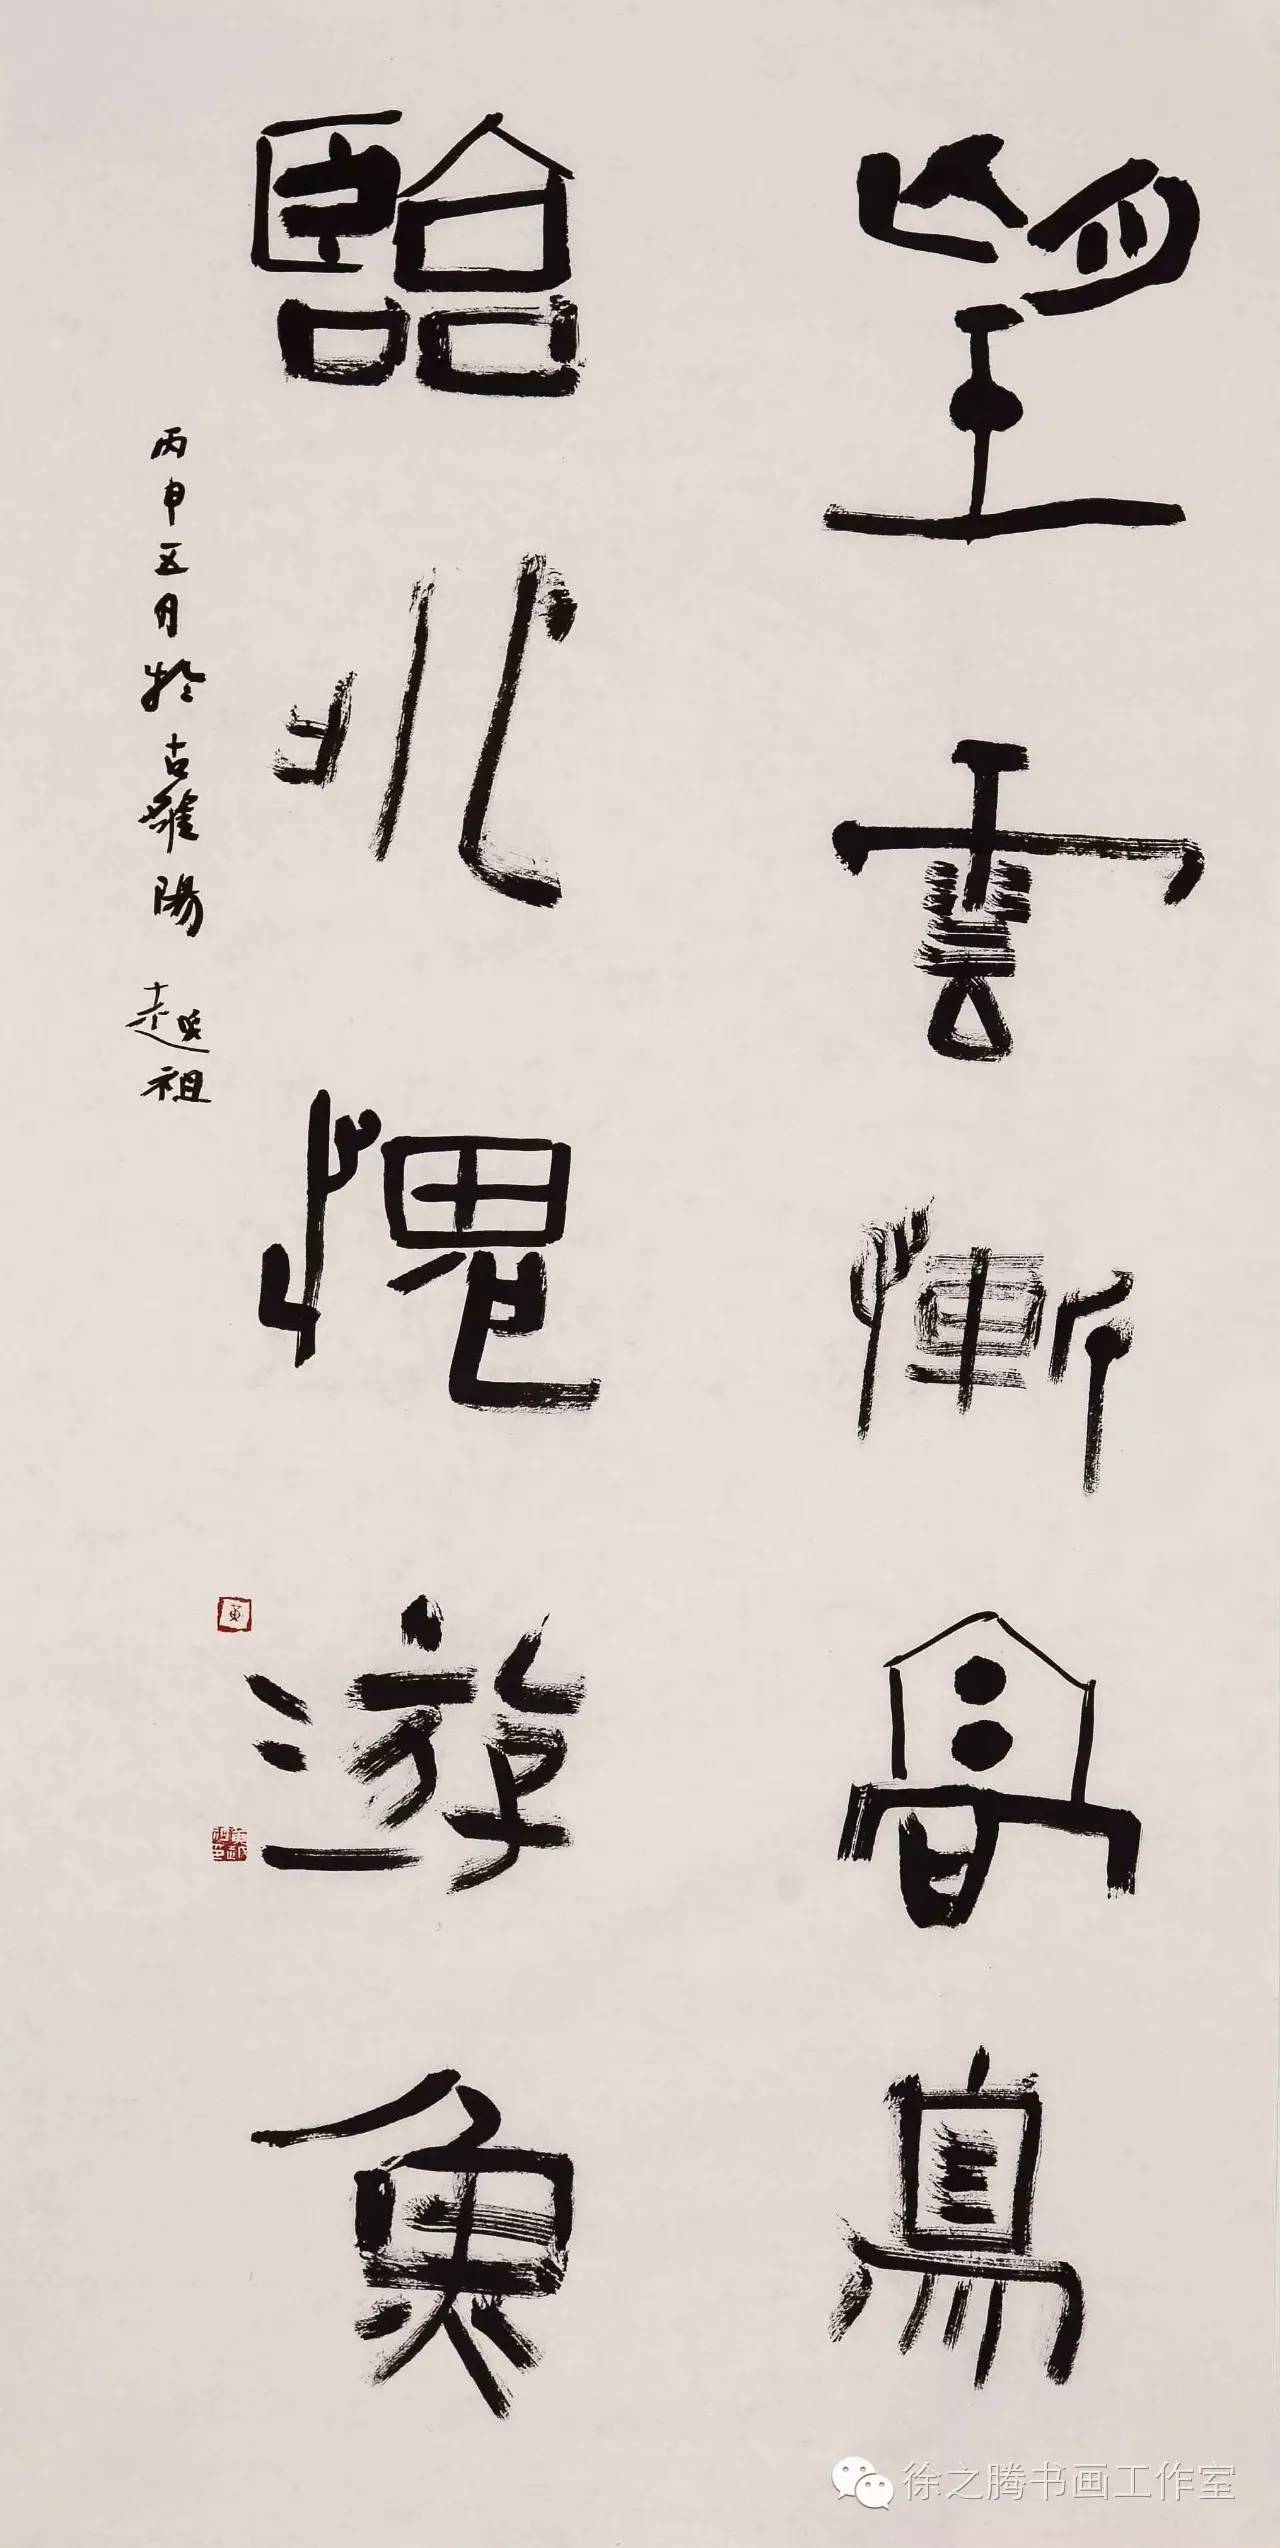 望雲慚高鳥
臨水愧游魚
丙申五月於古陽 越祖
黄
黄越祖印
徐之腾书画工作室